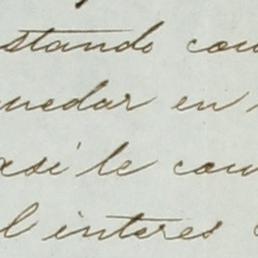 stando con
uedar en
asi le con
l interes